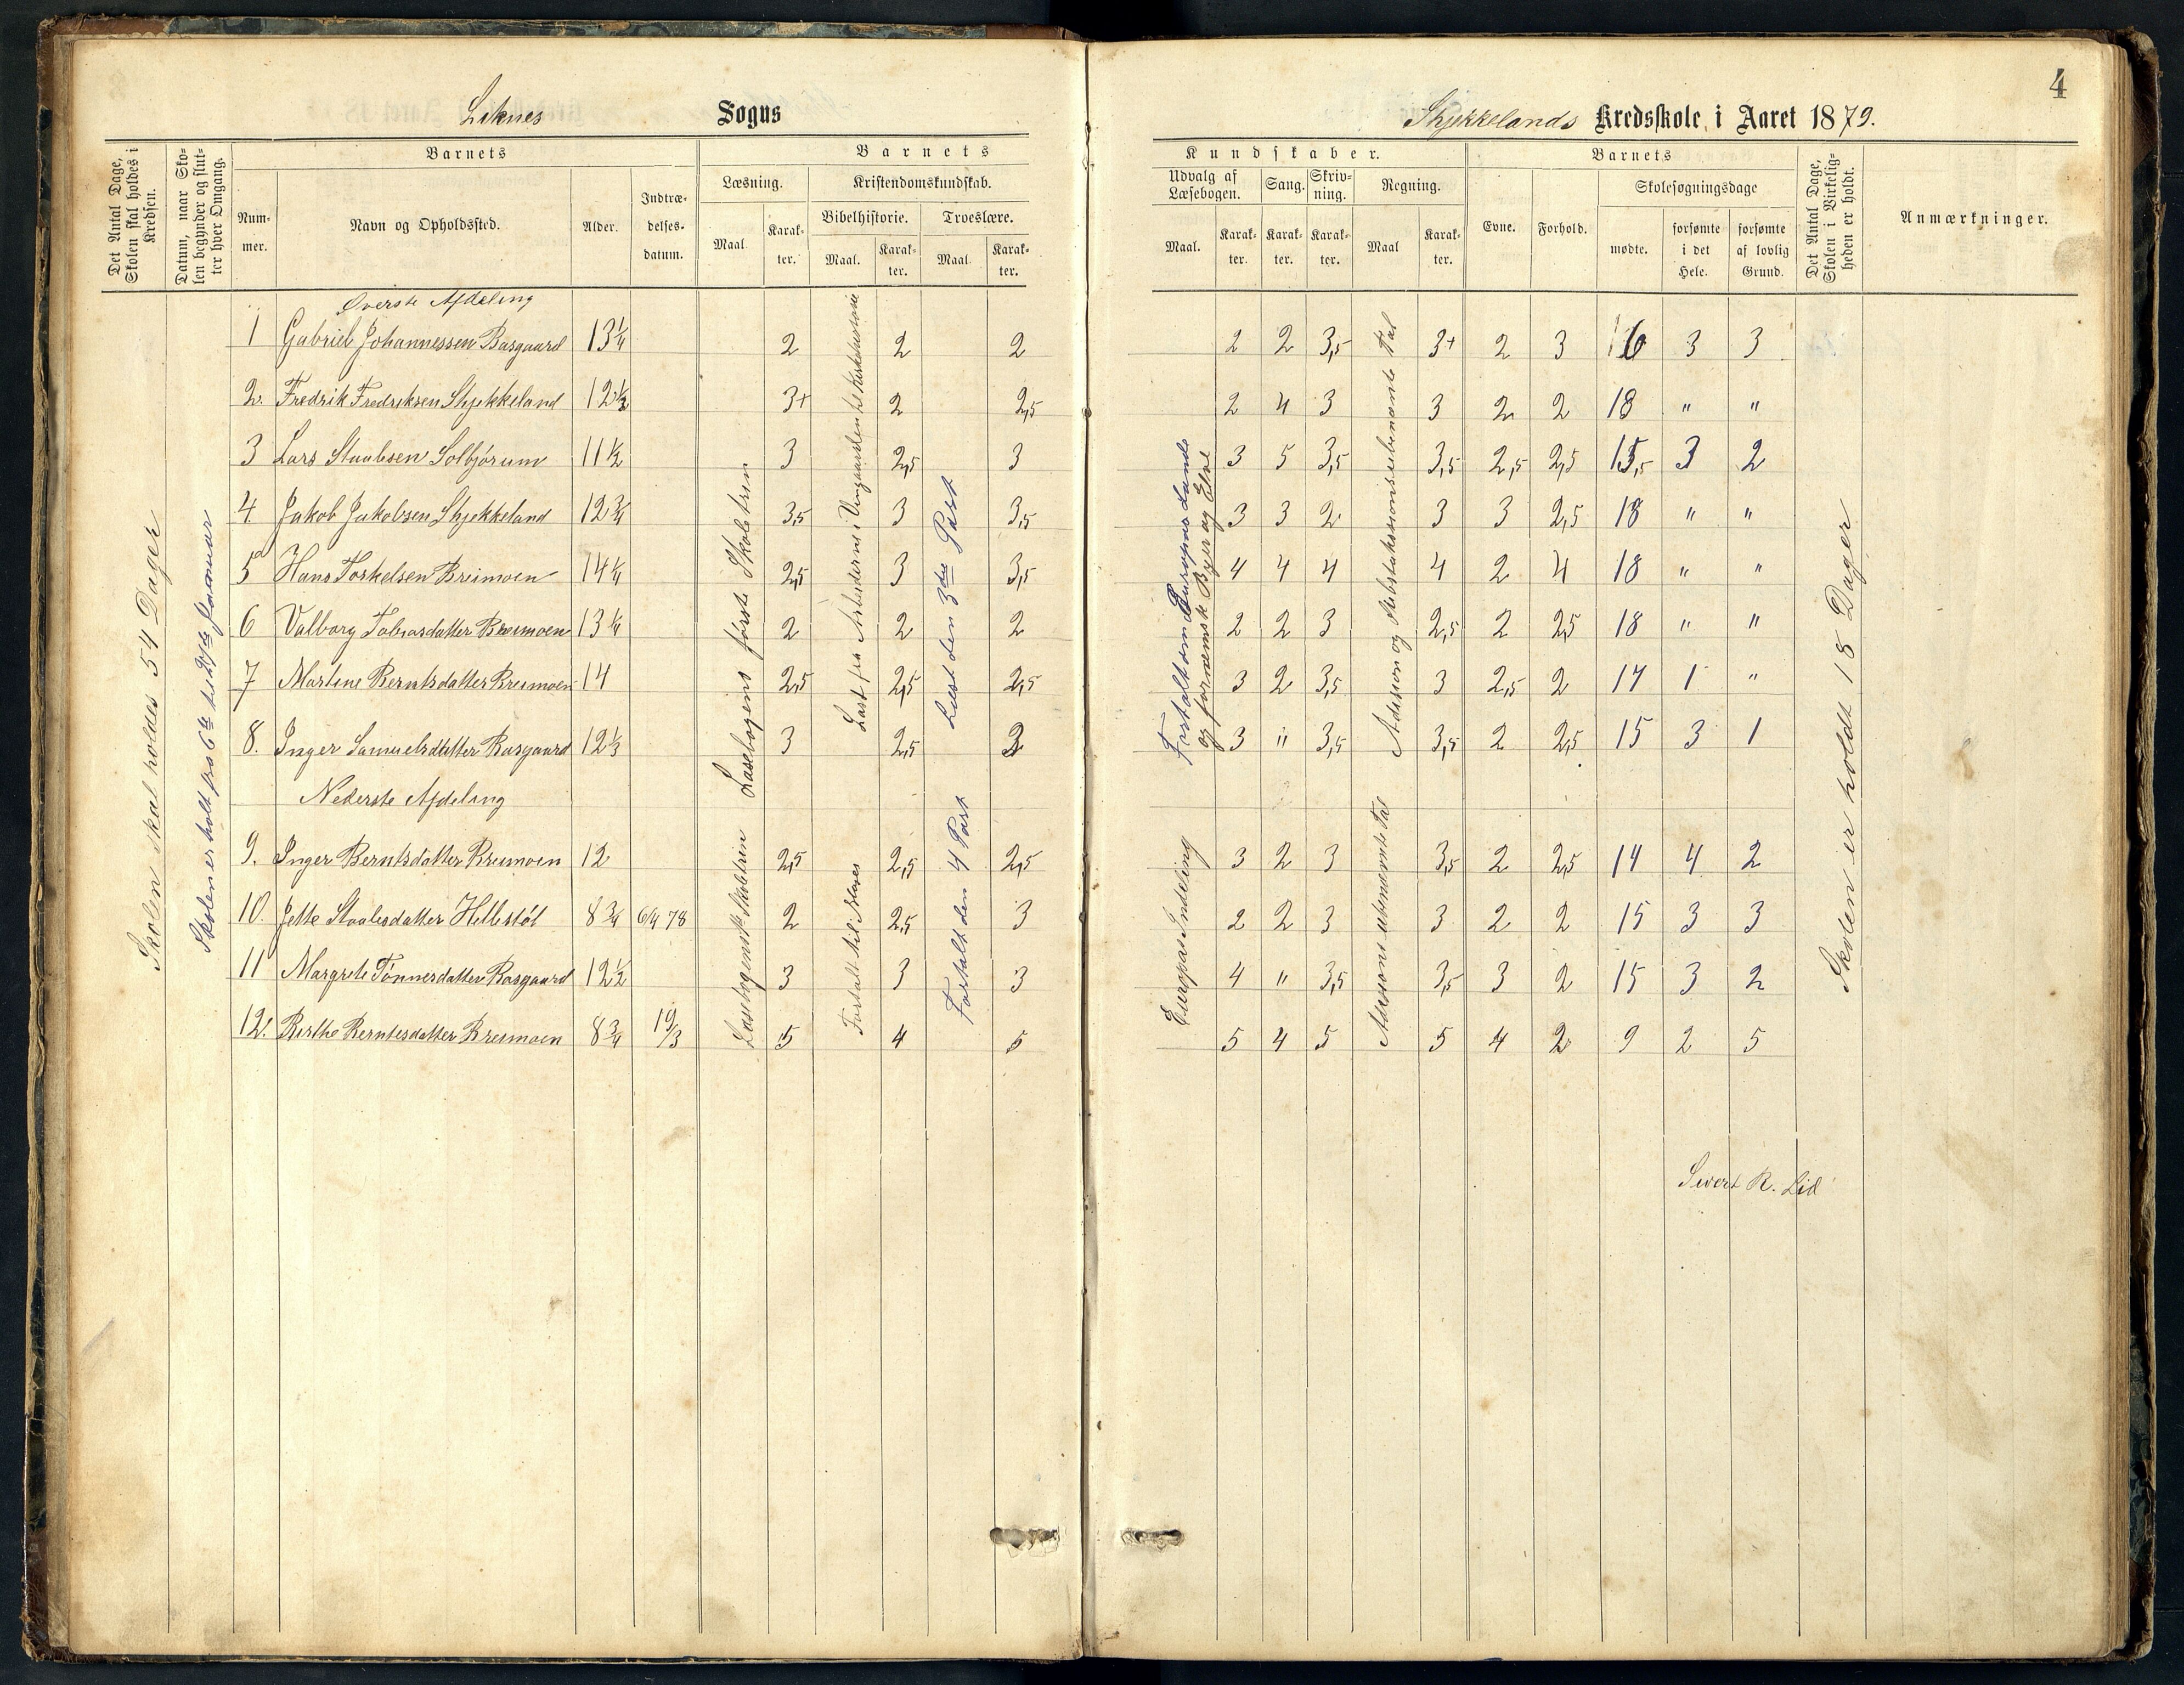 4
Liknes Sogns Skjekkelands Kredsskole i Aaret 1879.
Det Antal Dage, Skolen skal holdes i Kredsen.
Datum, naar Skolen begynder og slutter hver Omgang.
Barnets
Nummer.
Navn og Opholdssted.
Alder.
Indtrædelsesdatum.
Barnets Kundskaber.
Læsning.
Maal.
Karakter.
Kristendomskundskab.
Bibelhistorie.
Maal.
Karakter.
Troeslære.
Maal.
Karakter.
Udvalg af Læsebogen.
Maal.
Karakter.
Sang.
Karakter.
Skrivning.
Karakter.
Regning.
Maal
Karakter.
Barnets
Evne.
Forhold.
Skolesøgningsdage
mødte.
forsømte i det Hele.
forsømte af lovlig Grund.
Det Antal Dage, Skolen i Virkeligheden er holdt.
Anmærkninger.
Skolen skal holdes 54 Dager
Skolen er holt fra 6te til 27de Januar
Øverste Afdeling
1 Gabriel Johannessen Basgaard 13 1/4 2 2 2 2 2 3,5 3+ 2 3 16 3 3
2. Fredrik Fredriksen Skjekkeland 12 1/2 3+ 2 2,5 2 4 3 3 2 2 18 " "
3 Lars Staalesen Solbjørum 11 1/2 3 2,5 3 3 5 3,5 3,5 2,5 2,5 15,5 3 2
4. Jakob Jakobsen Skjekkeland 12 3/4 3,5 3 3,5 3 3 2 3 3 2,5 18 " "
5 Hans Torkelsen Breimoen 14 1/4 2,5 3 3,5 4 4 4 4 2 4 18 " "
6 Valborg Tobiasdatter Breimoen 13 1/4 2 2 2 2 2 3 2,5 2 2,5 18 " "
7 Martine Berntsdatter Breimoen 14 2,5 2,5 2,5 3 2 3,5 3 2,5 2 17 1 "
8. Inger Samuelsdatter Basgaard 12 1/3 3 2,5 3 3 " 3,5 3,5 2 2,5 15 3 1
Læsebogens første Skoletrin
Læst fra Arbeiderne i Vingaarden til Kirkehistorie
Læst den 3die Part
Fortalt om Europas Lande og fornemste Byer og Elve
Adission og Subtraksion ubenævnte Tal
Nederste Afdeling
9. Inger Berntsdatter Breimoen 12 2,5 2,5 2,5 3 2 3 3,5 2 2,5 14 4 2
10. Jette Staalesdatter Hellestøl 8 3/4 6/4 78 2 2,5 3 2 2 3 3 2 2 15 3 3
11 Margrete Tønnesdatter Basgaard 12 1/2 3 3 3 4 " 3,5 3,5 3 2 15 3 2
12. Birthe Berntesdatter Breimoen 8 3/4 19/3 5 4 5 5 4 5 5 4 2 9 2 5
Læsebogens Skoletrin
Fortalt til Moses
Fortalt den 4 Part
Europas Indeling
Adisions ubenævnte Tal
Skolen er holdt 18 Dager
Sivert R. Lid